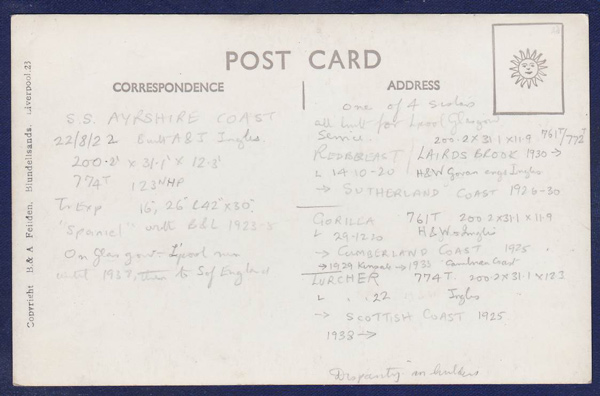 POST CARD
CORRESPONDENCE
S.S. AYRSHIRE COAST
22/8/22 Built A&J Inglis
200.2' x 31.1' x 12.3'
774T 123 NHP
T. Exp 16", 26" & 42" x 30"
"Spaniel" until B&L 1923
On Glasgow - L'pool run
until 1937, then to S of England
ADDRESS
one of 4 sisters
all built for L'pool Glasgow
Service. 200.2 x 31.1 x 11.9 761T/772T
LAIRDS BROOK 1930 →
L 14-10-20 H&W Govan engs Inglis
→ SUTHERLAND COAST 1926-30
GORILLA 761T 200.2 x 31.1 x 11.9
L 29-12-20 H&W & Inglis
→ CUMBERLAND COAST 1925
→ 1929 → 1933 Cambrian Coast
LURCHER 774T. 200.2 x 31.1 x 12.3
L . . 22 Inglis
→ SCOTTISH COAST 1925
1938 →
Disparity in builders
Copyright B. & A Feilden, Blundellsands, Liverpool, 23